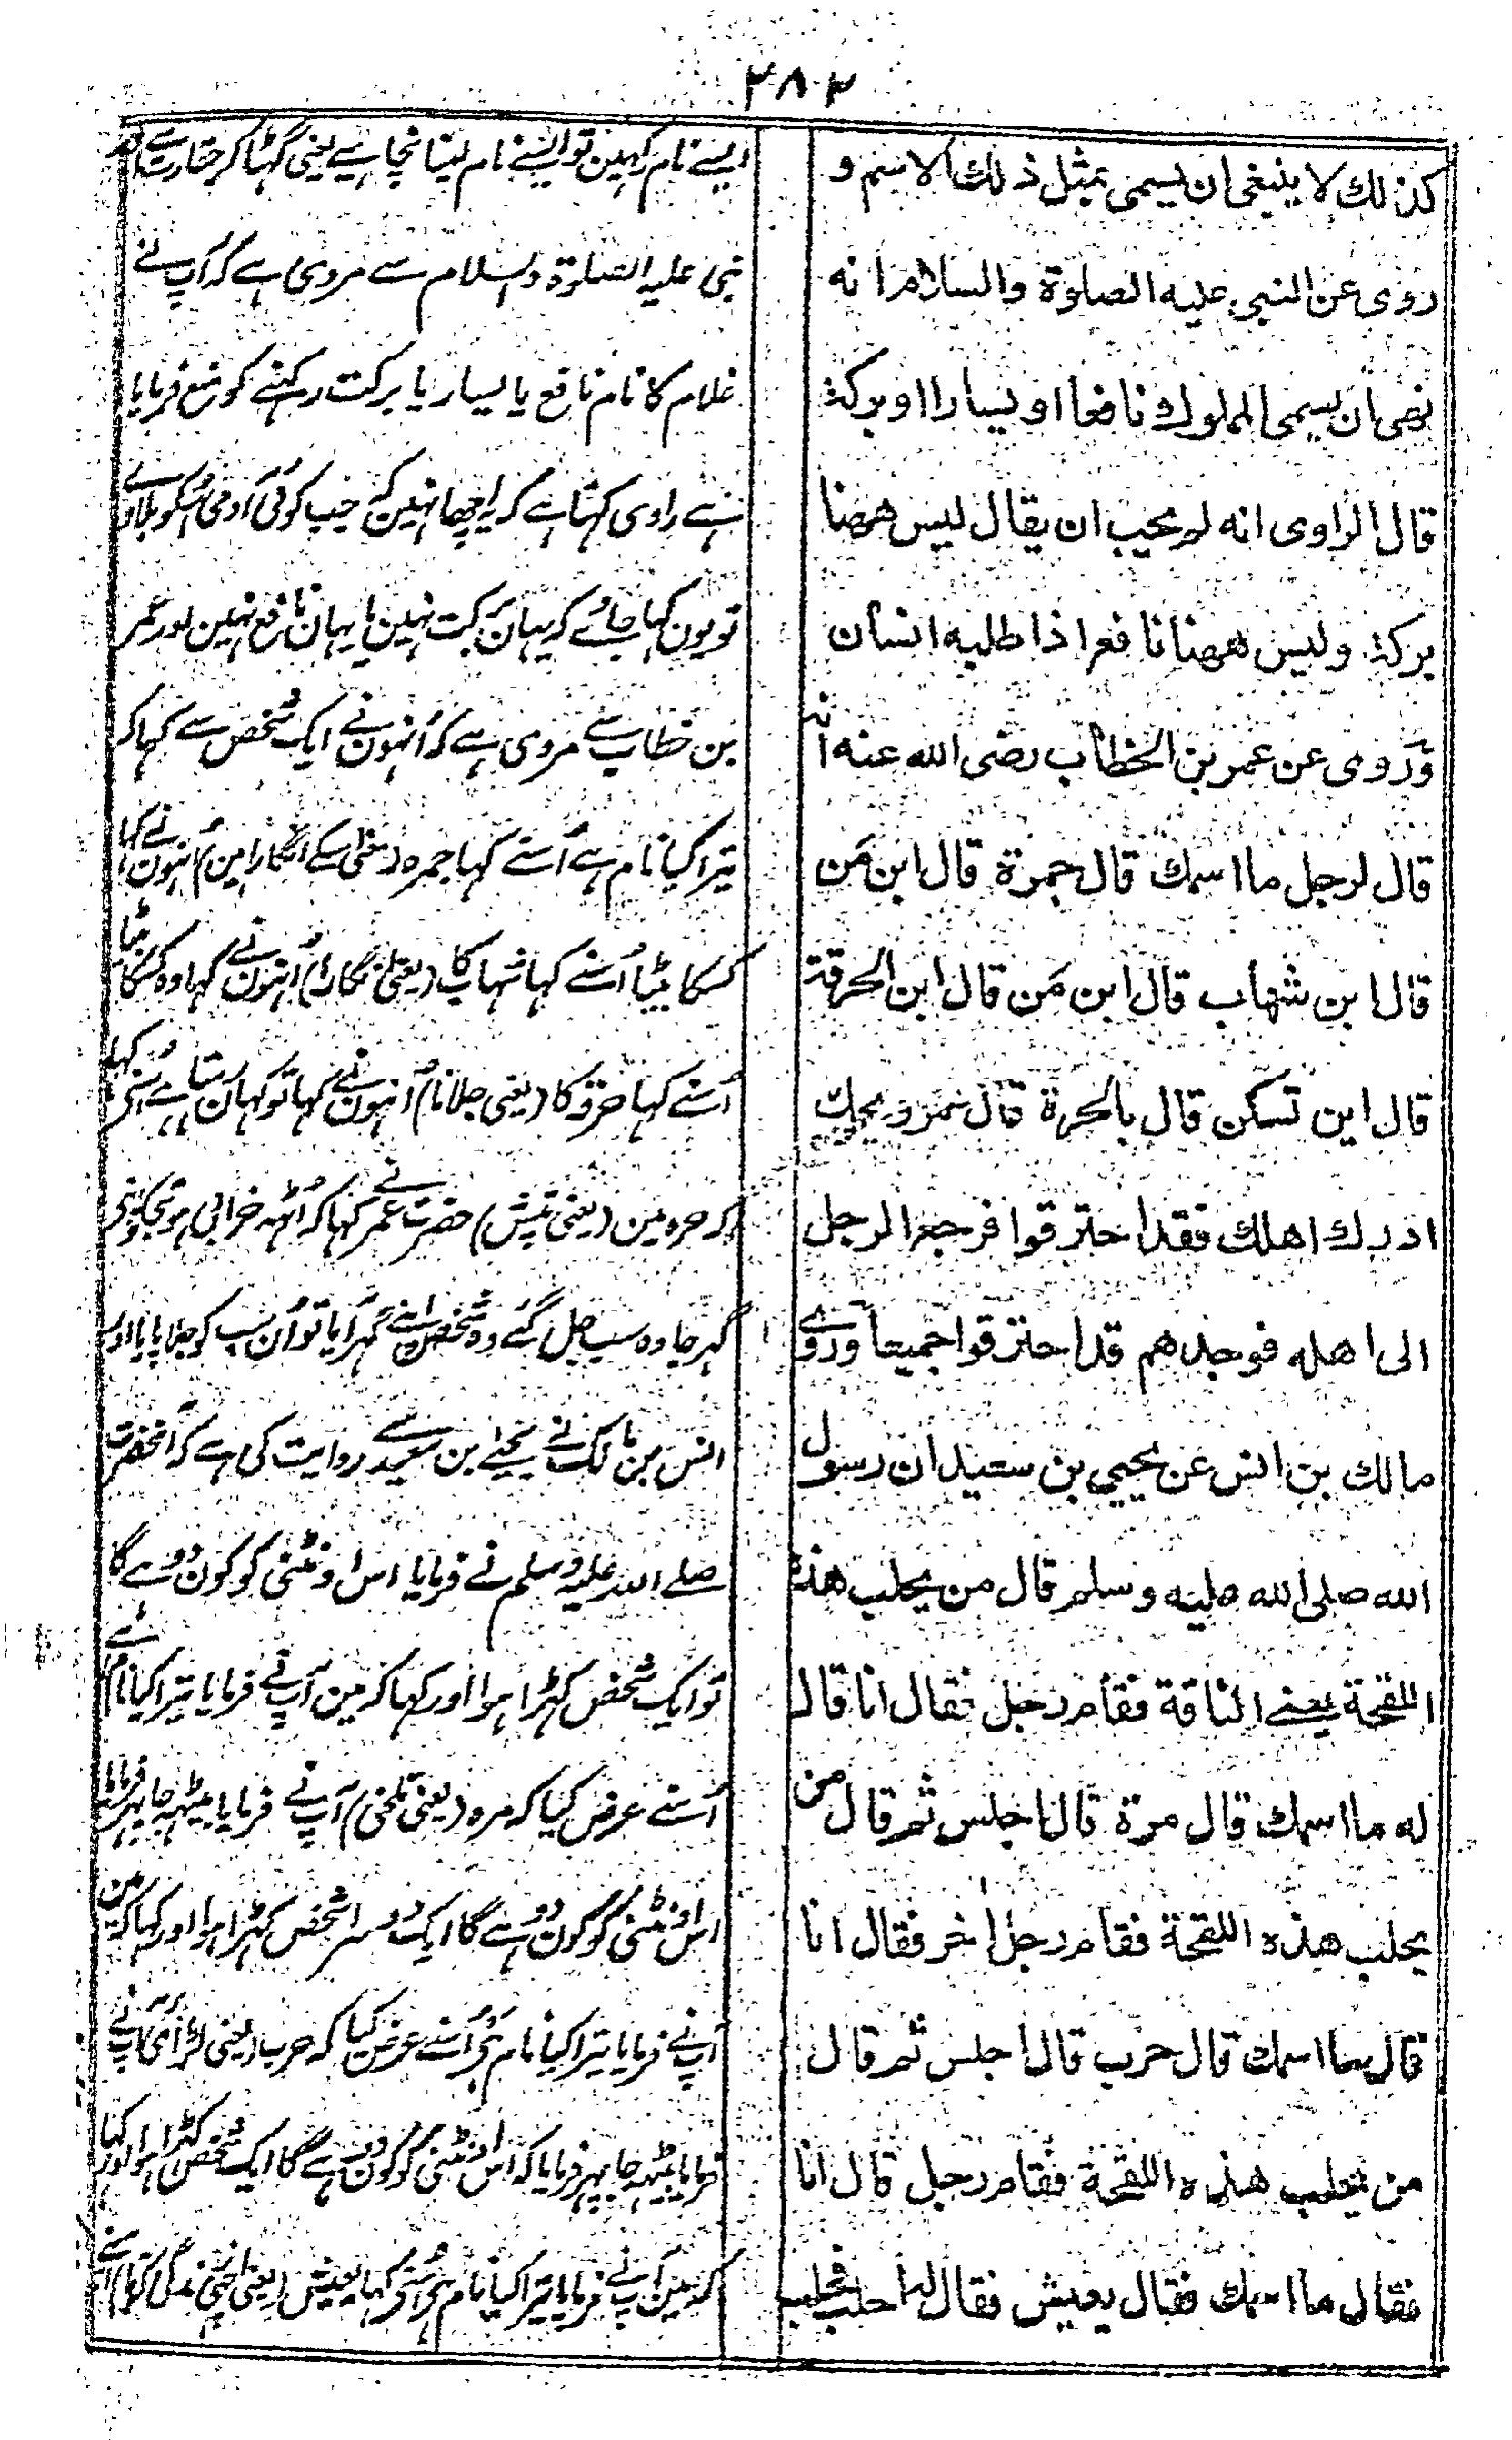 ٣٨٢
كذلك لا ينبغى ان يسمى بمثل ذلك الاسم و
روى عن النبى عليه الصلوة والسلام انه
نهى ان يسمى المملوك نافعا او يسارا او بركة
قال الراوى انه لم يحب ان يقال ليس ههنا
بركة وليس ههنا نافع اذا طلبه انسان
وروى عن عمر بن الخطاب رضى الله عنه انه
قال لرجل ما اسمك قال جمرة قال ابن من
قال ابن شهاب قال ابن من قال ابن الحرقة
قال اين تسكن قال بالحرة قال عمر ويحك
ادرك اهلك فقد احترقوا فرجع الرجل
الى اهله فوجدهم قد احترقوا جميعا وروى
مالك بن انس عن يحيى بن سعيد ان رسول
الله صلى الله عليه وسلم قال من يحلب هذه
اللقحة يعنى الناقة فقام رجل فقال انا قال
له ما اسمك قال مرة قال اجلس ثم قال من
يحلب هذه اللقحة فقام رجل اخر فقال انا
قال ما اسمك قال حرب قال اجلس ثم قال
من يحلب هذه اللقحة فقام رجل قال انا
فقال ما اسمك فقال يعيش فقال له احلب فحلب
ایسے نام کہین تو ایسے نام لینا نچاہیے یعنی گہٹا کر حقارت سے
نبی علیہ الصلوۃ والسلام سے مروی ہے کہ آپ نے
غلام کا نام نافع یا یسار یا برکت رکہنے کو منع فرمایا
ہے راوی کہتا ہے کہ یہ اچھا نہین کہ جب کوئی آدمی اسکو بلاوے
تو یون کہا جاے کہ یہان برکت نہین یا یہان نافع نہین اور عمر
بن خطاب سے مروی ہے کہ اُنہون نے ایک شخص سے کہا کہ
تیرا کیا نام ہے اُسنے کہا جمرہ (معنی اسکے انگارا ہین) اُنہون نے کہا
کسکا بیٹا اُسنے کہا شہاب کا (یعنی انگارا) اُنہون نے کہا وہ کسکا بیٹا
اُسنے کہا حرقہ کا (یعنی جلانا) اُنہون نے کہا تو کہان رہتا ہے اُسنے کہا
کہ حرہ مین (یعنی تپش) حضرت عمر نے کہا کہ اُٹہہ خرابی ہو تجکو اپنے
گہر جا وہ سب جل گئے وہ شخص اپنے گہر آیا تو اُن سب کو جلا پایا اور
انس بن مالک نے یحیے بن سعید سے روایت کی ہے کہ آنحضرت
صلے اللہ علیہ وسلم نے فرمایا اس اونٹنی کو کون دوہے گا
تو ایک شخص کہڑا ہوا اور کہا کہ مین آپ نے فرمایا تیرا کیا نام ہے
اُسنے عرض کیا کہ مرہ (یعنی تلخی) آپ نے فرمایا بیٹہہ جا پہر فرمایا
اس اونٹنی کو کون دوہے گا ایک دوسرا شخص کہڑا ہوا اور کہا کہ مین
آپ نے فرمایا تیرا کیا نام ہے اُسنے عرض کیا کہ حرب (یعنی لڑائی) آپ نے
فرمایا بیٹہہ جا پہر فرمایا کہ اس اونٹنی کو کون دوہے گا ایک شخص کہڑا ہوا اور کہا
کہ مین آپ نے فرمایا تیرا کیا نام ہے اُسنے کہا یعیش (یعنی اچھی زندگی